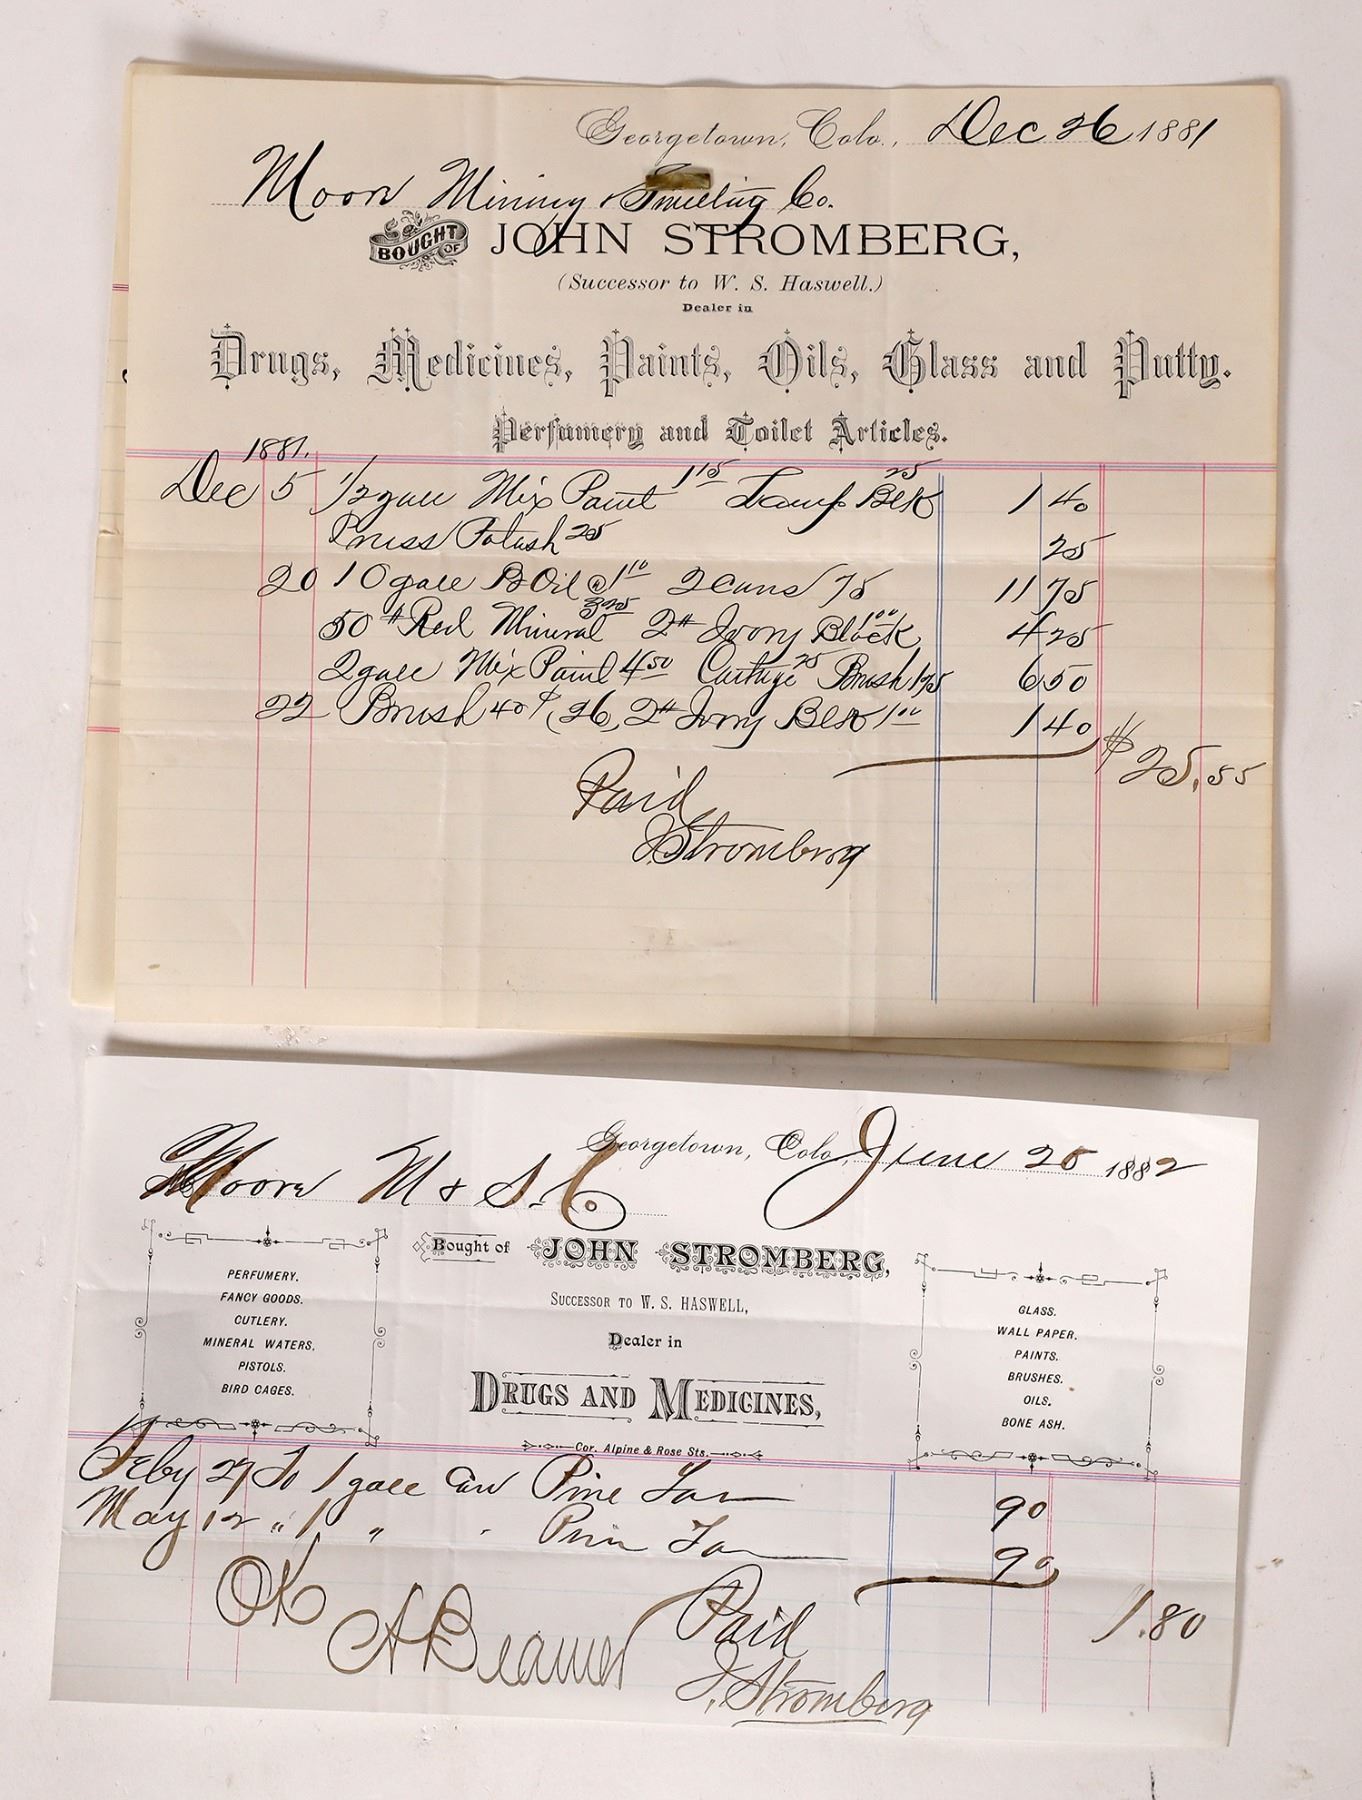 Georgetown, Colo., Dec 26 1881
Moore Mining & Smelting Co.
BOUGHT OF JOHN STROMBERG,
(Successor to W. S. Haswell.)
Dealer in
Drugs, Medicines, Paints, Oils, Glass and Putty.
Perfumery and Toilet Articles.
1881.
Dec 5 1/2 gall Mix Paint 1 15 Lamp Blk 25 1 40
Pruss Potash 25 25
20 10 gall B Oil @ 1 10 2 Cans 75 11 75
50 # Red Mineral 3 25 2 # Ivory Black 1 00 4 25
2 gall Mix Paint 4 50 25 Brush 1 75 6 50
22 Brush 40 ¢ (26, 2 # Ivory Blk 1 00 1 40
$ 25.55
Paid
J. Stromberg
Georgetown, Colo., June 20 1882
Moore M & S. Co
Bought of JOHN STROMBERG,
SUCCESSOR TO W. S. HASWELL,
Dealer in
DRUGS AND MEDICINES,
Cor. Alpine & Rose Sts.
PERFUMERY.
FANCY GOODS.
CUTLERY.
MINERAL WATERS.
PISTOLS.
BIRD CAGES.
GLASS.
WALL PAPER.
PAINTS.
BRUSHES.
OILS.
BONE ASH.
Feby 27 To 1 gall Can Pine Tar 90
May 12 " 1 " " Pine Tar 90
1.80
OK
A Beamer
Paid
J. Stromberg